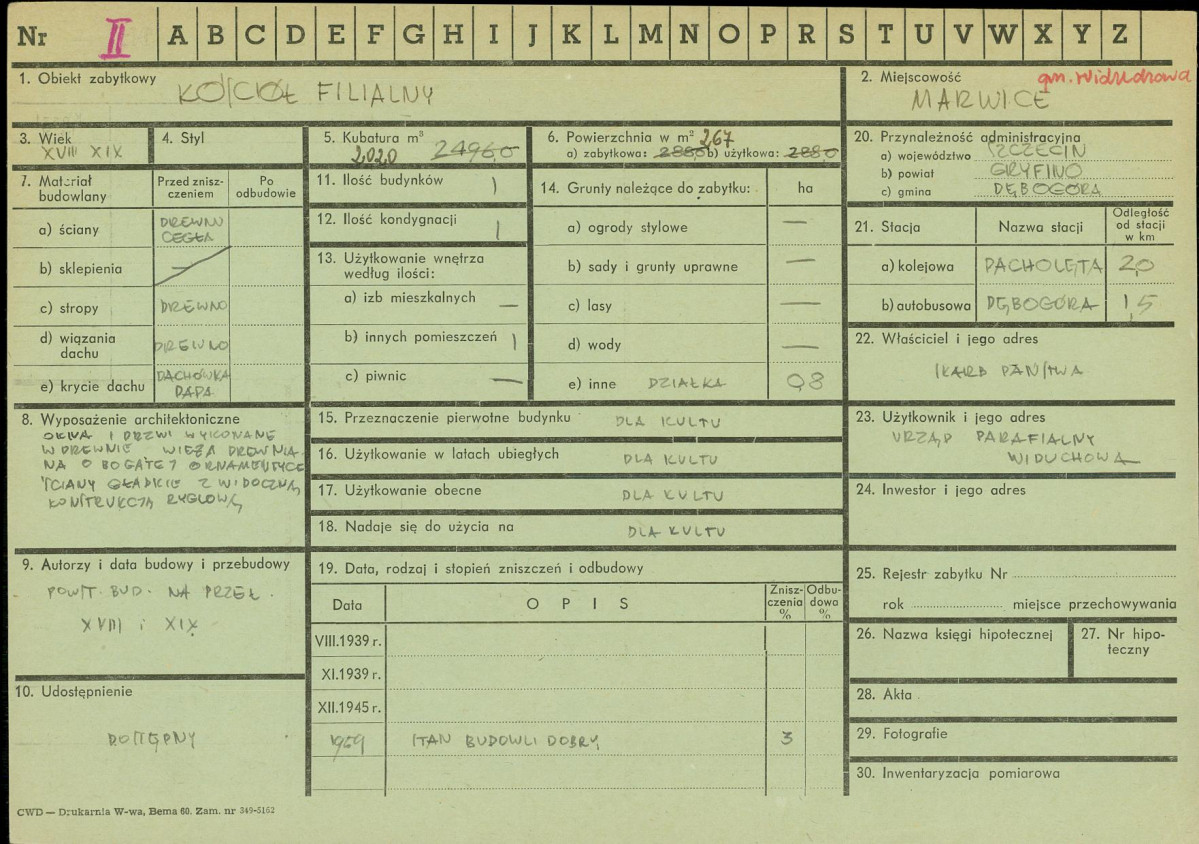 Nr II A B C D E F G H I J K L M N O P R S T U V W X Y Z
1. Obiekt zabytkowy
KOŚCIÓŁ FILIALNY
2. Miejscowość
gm. Widuchowa
MARWICE
3. Wiek
XVIII XIX
4. Styl
5. Kubatura m³
2020 2496,0
6. Powierzchnia w m² 267
a) zabytkowa: 288,0 b) użytkowa: 288,0
20. Przynależność administracyjna
a) województwo SZCZECIN
b) powiat GRYFINO
c) gmina DĘBOGÓRA
7. Materiał budowlany
Przed zniszczeniem
Po odbudowie
a) ściany DREWNO
CEGŁA
b) sklepienia —
c) stropy DREWNO
d) wiązania dachu DREWNO
e) krycie dachu DACHÓWKA
PAPA
11. Ilość budynków 1
12. Ilość kondygnacji 1
13. Użytkowanie wnętrza według ilości:
a) izb mieszkalnych —
b) innych pomieszczeń 1
c) piwnic —
14. Grunty należące do zabytku: ha
a) ogrody stylowe —
b) sady i grunty uprawne —
c) lasy —
d) wody —
e) inne DZIAŁKA 0,8
21. Stacja Nazwa stacji Odległość od stacji w km
a) kolejowa PACHOLĘTA 2,0
b) autobusowa DĘBOGÓRA 1,5
22. Właściciel i jego adres
SKARB PAŃSTWA
8. Wyposażenie architektoniczne
OKNA I DRZWI WYKONANE
W DREWNIE WIEŻA DREWNIA-
NA O BOGATEJ ORNAMENTYCE
ŚCIANY GŁADKIE Z WIDOCZNĄ
KONSTRUKCJĄ RYGLOWĄ
15. Przeznaczenie pierwotne budynku DLA KULTU
16. Użytkowanie w latach ubiegłych DLA KULTU
17. Użytkowanie obecne DLA KULTU
18. Nadaje się do użycia na DLA KULTU
23. Użytkownik i jego adres
URZĄD PARAFIALNY
WIDUCHOWA
24. Inwestor i jego adres
9. Autorzy i data budowy i przebudowy
POWST. BUD. NA PRZEŁ.
XVIII i XIX
10. Udostępnienie
DOSTĘPNY
19. Data, rodzaj i stopień zniszczeń i odbudowy
Data OPIS Zniszczenia % Odbudowa %
VIII.1939 r.
XI.1939 r.
XII.1945 r.
1959 STAN BUDOWLI DOBRY 3
25. Rejestr zabytku Nr
rok miejsce przechowywania
26. Nazwa księgi hipotecznej
27. Nr hipoteczny
28. Akta
29. Fotografie
30. Inwentaryzacja pomiarowa
CWD — Drukarnia W-wa, Bema 60. Zam. nr 349-5162